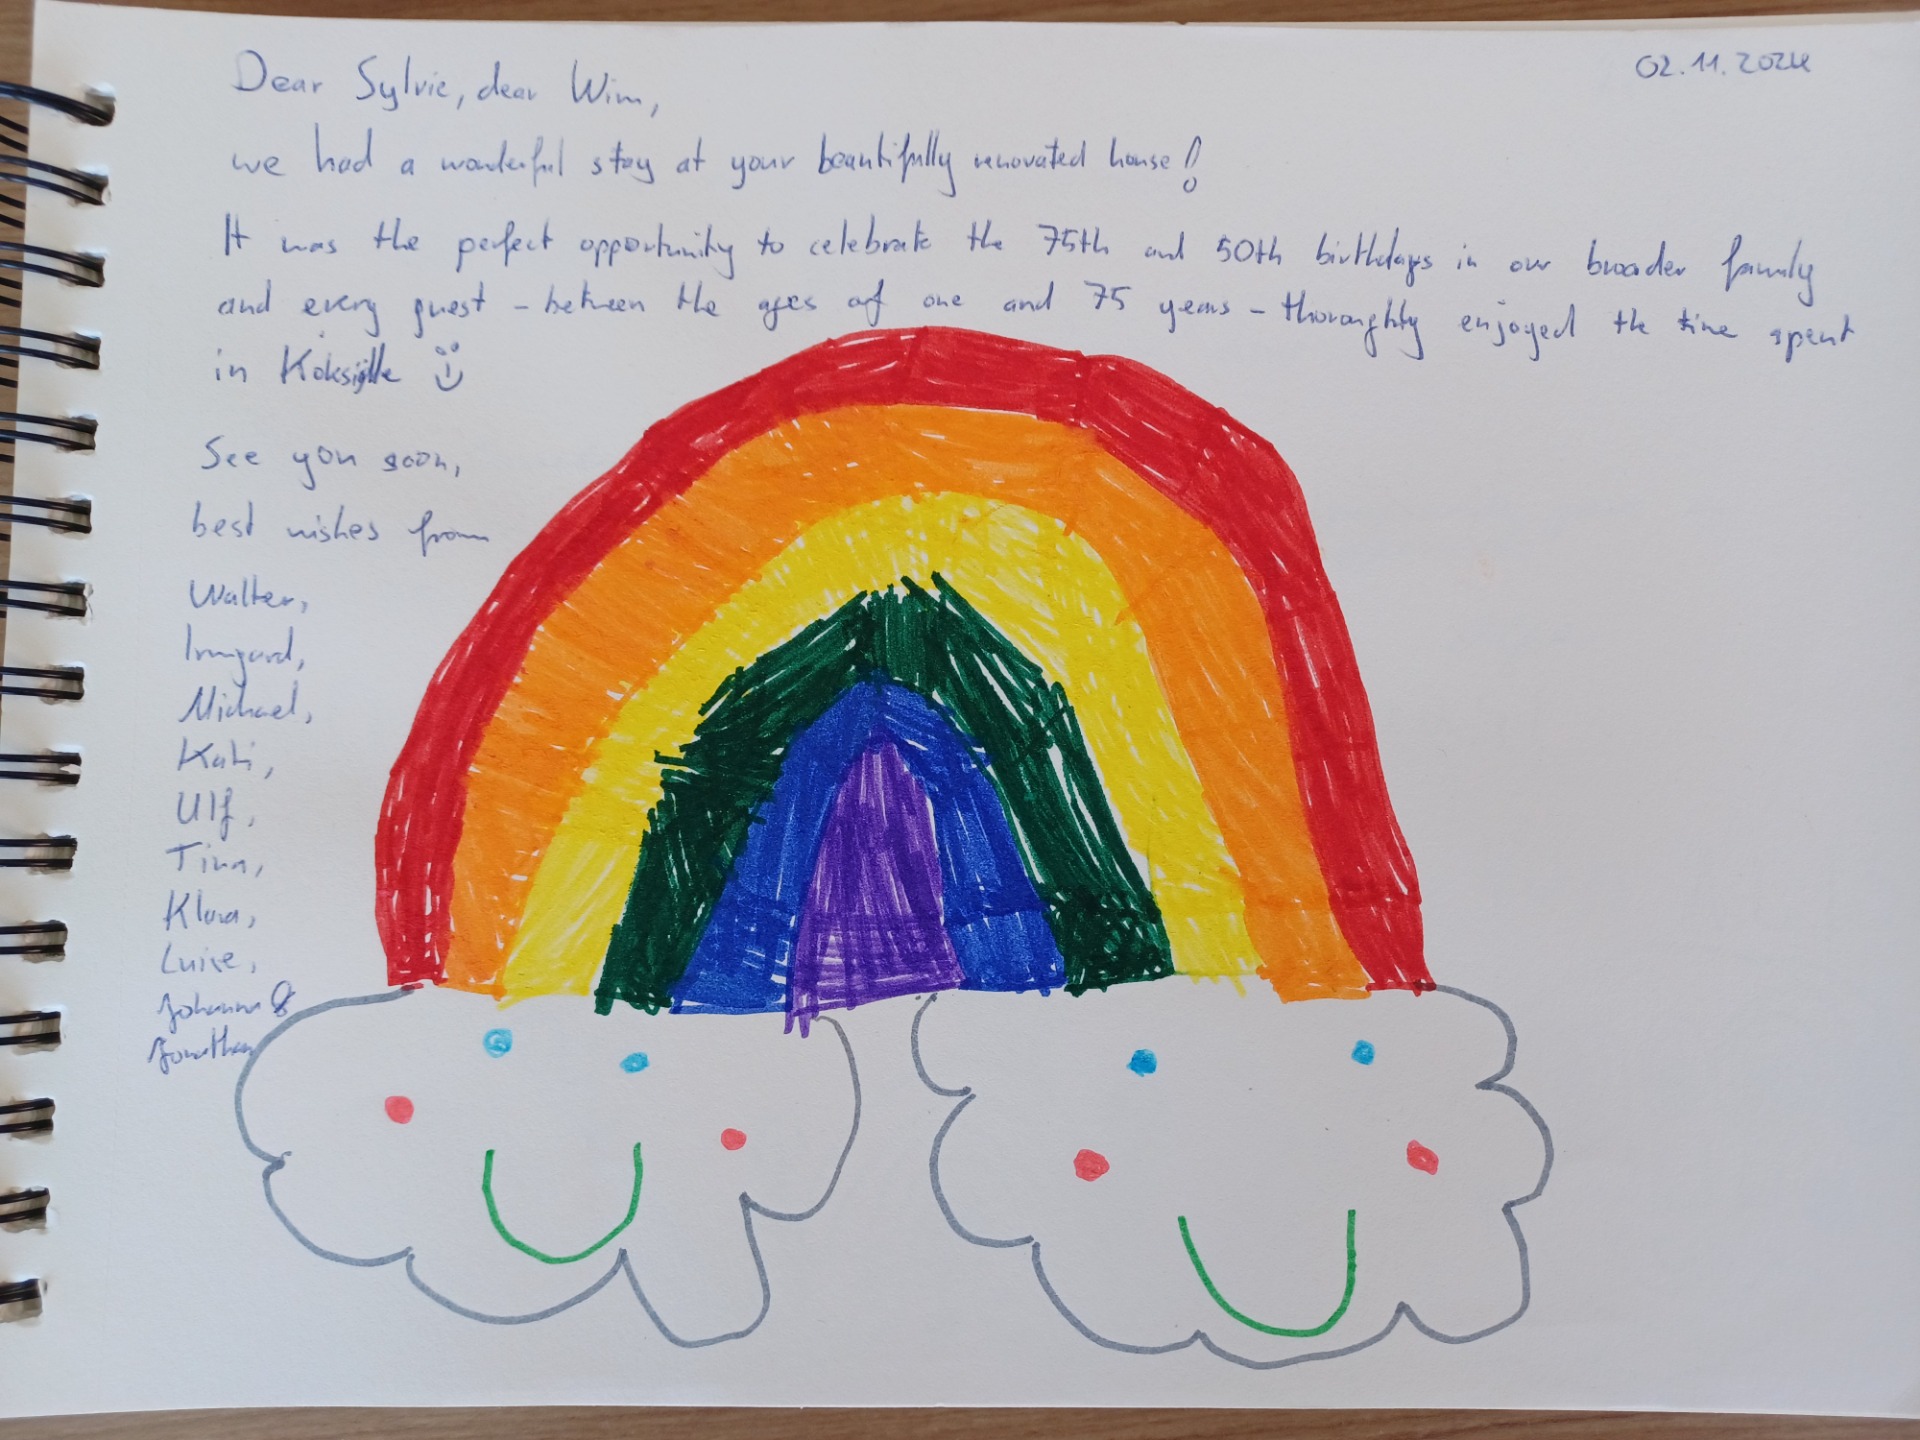 02.11.2024
Dear Sylvie, dear Wim,
we had a wonderful stay at your beautifully renovated house!
It was the perfect opportunity to celebrate the 75th and 50th birthdays in our broader family
and every guest - between the ages of one and 75 years - thoroughly enjoyed the time spent
in Koksijde
See you soon,
best wishes from
Walter,
Irmgard,
Michael,
Kati,
Ulf,
Tina,
Klara,
Luise,
Johanna &
Jonathan